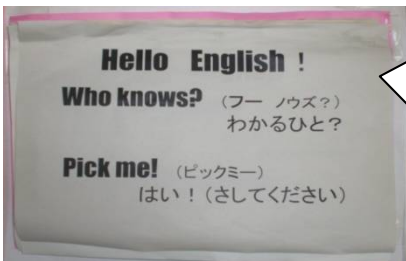 Hello English !
Who knows? (フー ノウズ?)
わかるひと?
Pick me! (ピックミー)
はい!(さしてください)